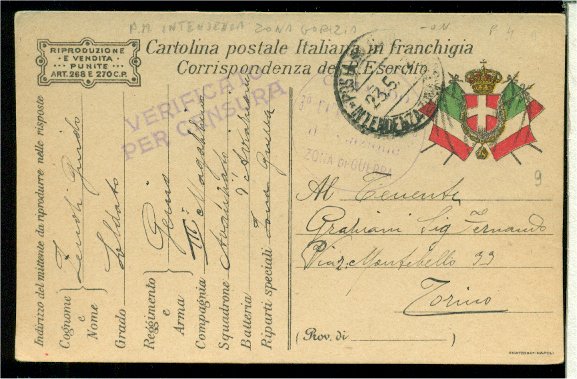 P.M INTENDENZA ZONA GORIZIA
RIPRODUZIONE
E VENDITA
PUNITE
ART. 268 E 270 C.P.
Cartolina postale Italiana in franchigia
Corrispondenza del R. Esercito
VERIFICATO
PER CENSURA
POSTA
23.5
INTENDENZA
ZONA DI GUERRA
9
Indirizzo del mittente da riprodurre nelle risposte
Cognome
e
Nome
Guido
Grado Soldato
Reggimento
e
Arma
Genio
Compagnia III
Squadrone
Batteria
Riparti speciali Zona Guerra
Al Tenente
Graziani Sig Fernando
Piaz. Montebello 33
Torino
(Prov. di )